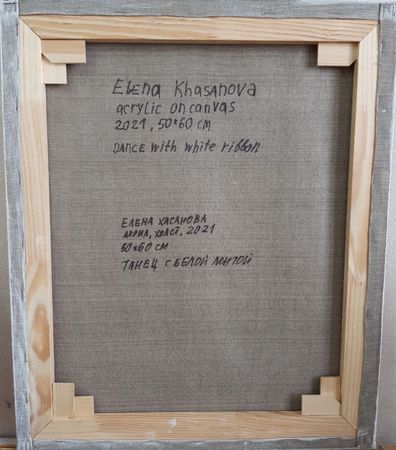 Elena Khasanova
acrylic on canvas
2021, 50*60 cm
DANCE with white ribbon
ЕЛЕНА ХАСАНОВА
АКРИЛ, ХОЛСТ, 2021
50*60 СМ
ТАНЕЦ С БЕЛОЙ ЛЕНТОЙ